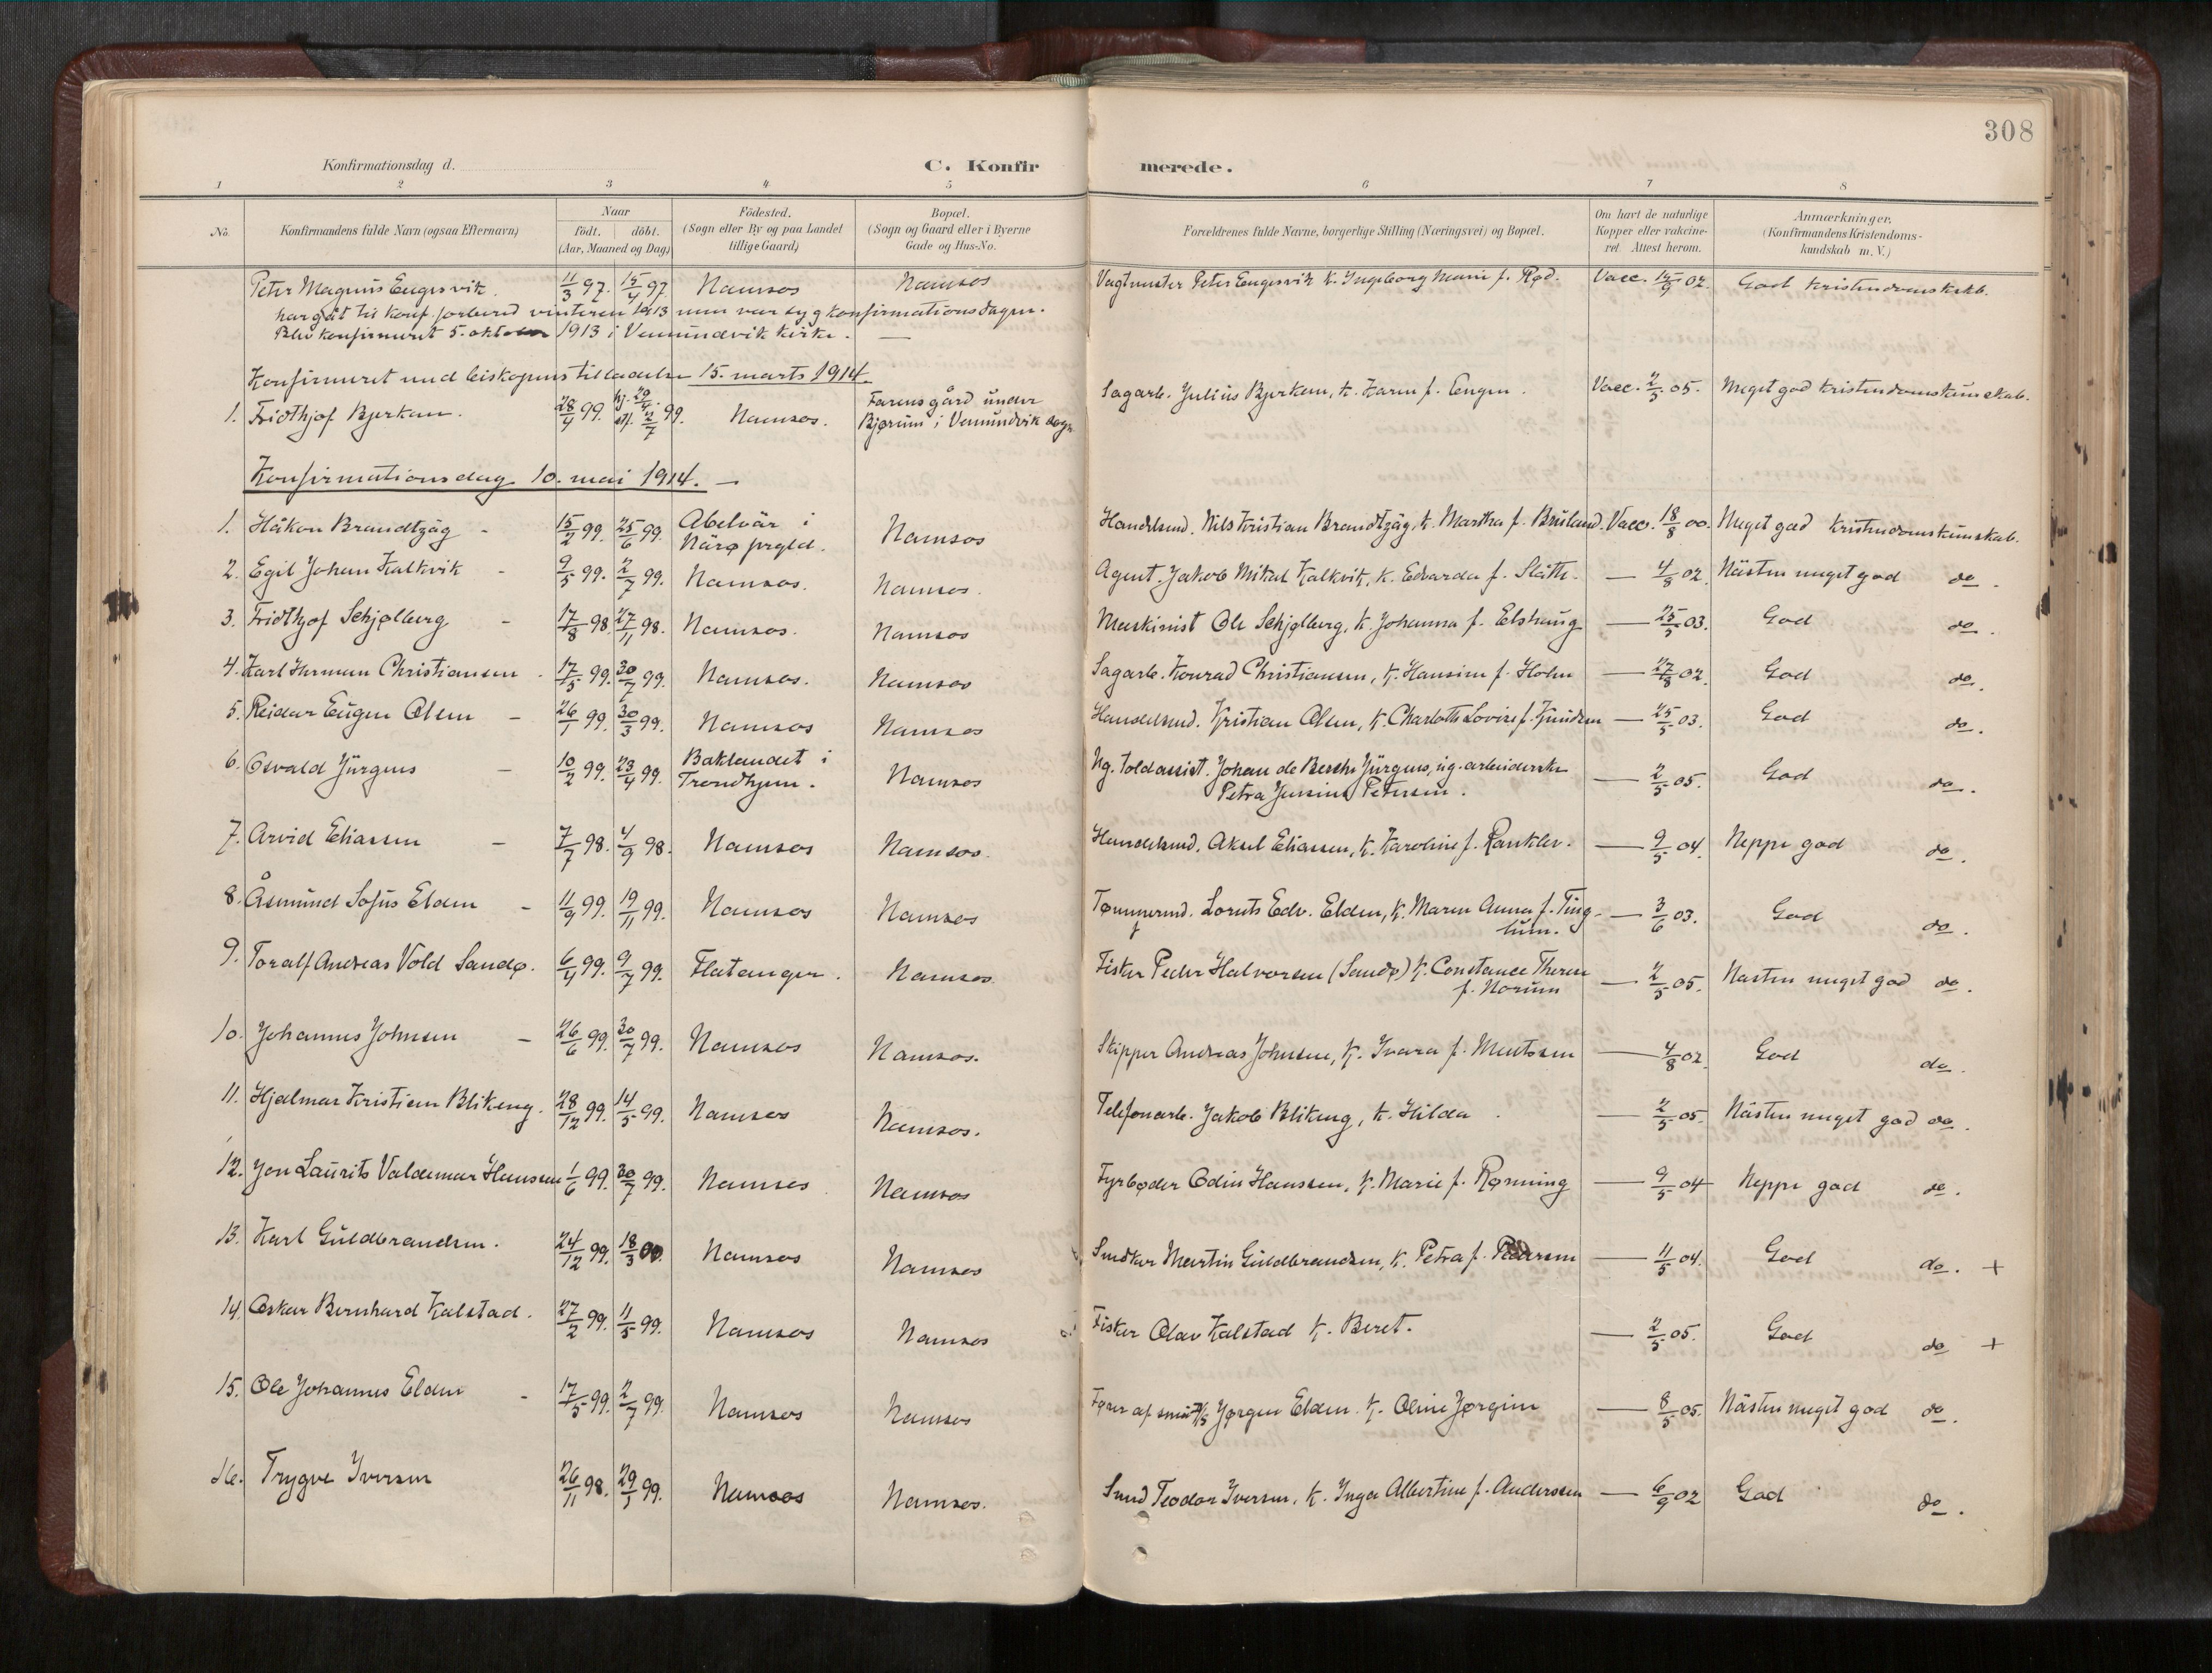 308
Konfirmationsdag d.
C. Konfir
merede.
1 2 3 4 5 6 7 8
No.
Konfirmandens fulde Navn (ogsaa Efternavn)
Naar
födt. döbt.
(Aar, Maaned og Dag)
Födested.
(Sogn eller By og paa Landet
tillige Gaard)
Bopæl.
(Sogn og Gaard eller i Byerne
Gade og Hus-No.
Forældrenes fulde Navne, borgerlige Stilling (Næringsvei) og Bopæl.
Om havt de naturlige
Kopper eller vakcine-
ret. Attest herom.
Anmærkninger.
(Konfirmandens Kristendoms-
kundskab m. V.)
Peter Magnus Engesvik. 11/3 97. 15/4 97 Namsos Namsos Vagtmester Peter Engesvik k. Ingeborg Marie f. Rød. Vacc. 15/9 02. God kristendomskskb.
har gåt til konf. forbered vinteren 1913 men var syg konfirmationsdagen.
Blev konfirmeret 5. oktober 1913 i Vemundvik kirke. —
Konfirmeret med biskopens tilladelse 15. marts 1914.
1. Fridthjof Bjerkem. 28/4 99. hj. 29/4. stf. 2/7 99. Namsos. Farensgård under
Bjørum i Vemundvik sogn Sagarb. Julius Bjerkem, k. Karen f. Engen. Vacc. 2/5 05. Meget god kristendomskundskab.
Konfirmationsdag 10. mai 1914. —
1. Håkon Brandtzäg - 15/2 99. 25/6 99. Abelvär i
Närø prgld. Namsos Handelsmd. Nils Kristian Brandtzäg, k. Martha f. Brusland. Vacc. 18/8 00. Meget god kristendomskunskab.
2. Egil Johan Kalkvik - 9/5 99. 2/7 99. Namsos. Namsos. Agent. Jakob Mikal Kalkvik, k. Edvarda f. Släth. — 4/8 02. Nästen meget god do.
3. Fridthjof Schjølberg - 17/8 98. 27/11 98. Namsos. Namsos Maskinist Ole Schjølberg, k. Johanna f. Elshaug — 25/5 03. God do.
4. Karl Herman Christiansen. 17/5 99. 30/7 99. Namsos. Namsos Sagarb. Konrad Christiansen, k. Hansine f. Holm — 27/8 02. God do.
5. Reidar Eugen Olsen - 26/1 99. 30/3 99. Namsos Namsos Handelsmd. Kristian Olsen, k. Charlotte Lovise f. Knudsen — 25/5 03. God do.
6. Osvald Jürgens - 10/2 99. 23/4 99. Baklandet i
Trondhjem. Namsos Ug. toldassist. Johan de Besche Jürgens, ug. arbeiderske
Petra Jensine Petersen. — 2/5 05. God do.
7. Arvid Eliassen - 7/7 98. 4/9 98. Namsos Namsos. Handelsmd. Aksel Eliassen, k. Karoline f. Ranklev. — 9/5 04. Neppe god do.
8. Åsmund Sofus Elden - 11/9 99. 19/11 99. Namsos Namsos Tømmermd. Lornts Edv. Elden, k. Maren Anna f. Ting-
lum. — 3/6 03. God do.
9. Toralf Andreas Vold Sandø. 6/4 99. 9/7 99. Flatanger. Namsos. Fisker Peder Halvorsen (Sandø) k. Constance Therese
f. Norum — 2/5 05. Nästen meget god do.
10. Johannes Johnsen - 26/6 99. 30/7 99. Namsos Namsos. Skipper Andreas Johnsen, k. Ivara f. Mentssen — 4/8 02. God do.
11. Hjalmar Kristian Blikeng. 28/12 99. 14/5 99. Namsos Namsos. Telefonarb. Jakob Blikeng, k. Hilda . — 2/5 05. Nästen meget god do.
12. Jon Laurits Valdemar Hanssen 1/6 99. 30/7 99. Namsos Namsos Fyrbøder Odin Hanssen, k. Marie f. Rønning — 9/5 04 Neppe god do.
13. Karl Guldbrandsen. 24/12 99. 18/3 00. Namsos Namsos Snedker Martin Guldbrandsen, k. Petra f. Pedersen — 11/5 04. God do. +
14. Oskar Bernhard Kalstad. 27/2 99. 11/5 99. Namsos Namsos Fisker Olav Kalstad k. Beret. — 2/5 05. God do +
15. Ole Johannes Elden - 17/5 99. 2/7 99. Namsos Namsos Fører af Jørgen Elden. k. Oline Jørgine — 8/5 05. Nästen meget god do.
16. Trygve Iversen 26/11 98. 29/1 99. Namsos Namsos. Smed Teodor Iversen, k. Inga Albertine f. Anderssen — 6/9 02 God do.